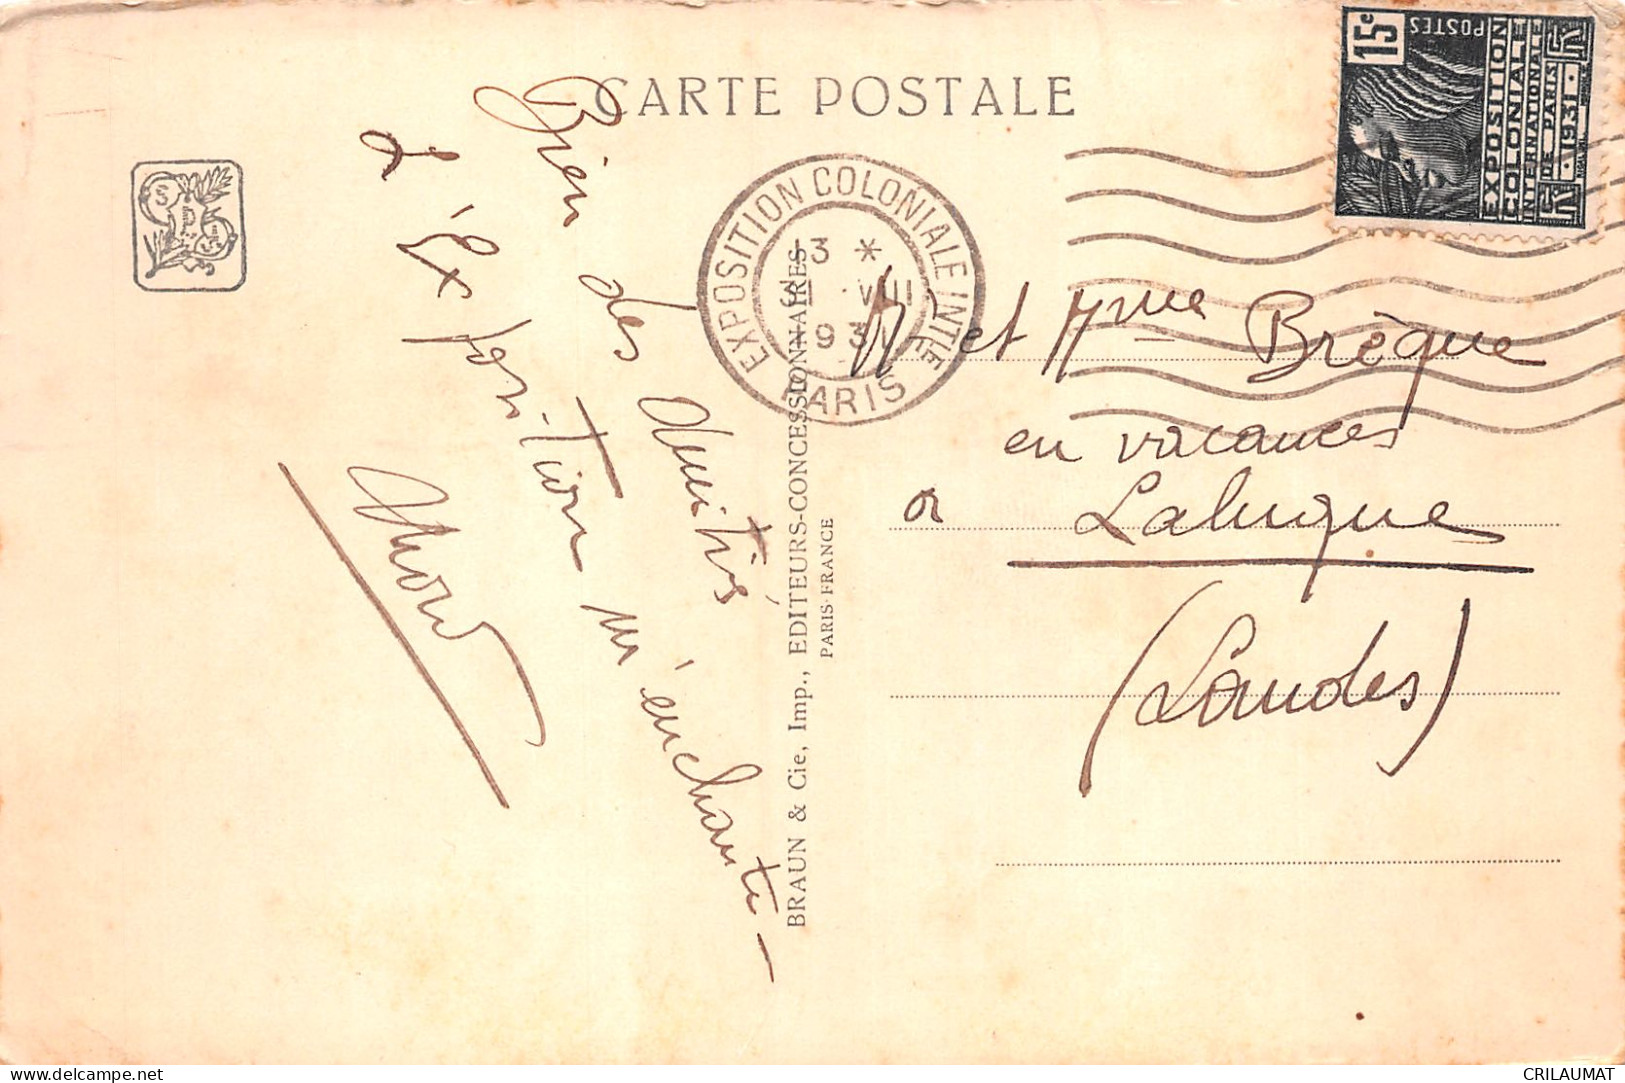 CARTE POSTALE
15c
POSTES
EXPOSITION
COLONIALE
INTERNATIONALE
DE PARIS
1931
EXPOSITION COLONIALE INTLE
PARIS
13 *
VIII
1931
Bien des amitiés
L'Exposition m'enchante –
BRAUN & Cie, Imp., EDITEURS-CONCESSIONNAIRES
PARIS-FRANCE
Mr et Mme Brèque
en vacances
à Laluque
(Landes)
CRILAUMAT